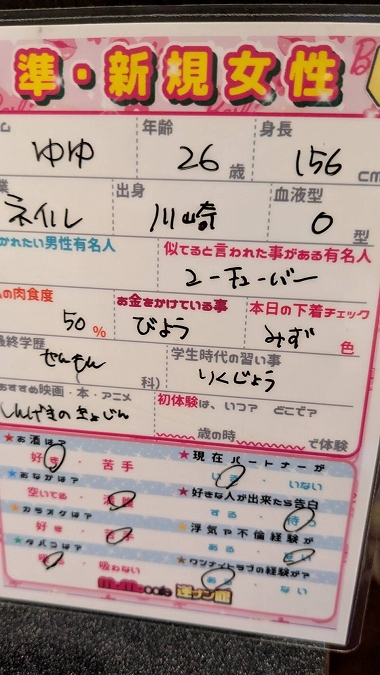 準・新規女性
ム 年齢 身長
ゆゆ 26歳 156cm
業 出身 血液型
ネイル 川崎 O型
かれたい男性有名人 似てると言われた事がある有名人
ユーチューバー
の肉食度 お金をかけている事 本日の下着チェック
50% びよう みず色
最終学歴 学生時代の習い事
せんもん 科） りくじょう
おすすめ映画・本・アニメ 初体験は、いつ？ どこで？
しんげきのきょじん 歳の時 で体験
★お酒は？ ★現在パートナーが
好き・苦手 いる・いない
★おなかは？ ★好きな人が出来たら告白
空いてる・満腹 する・待つ
★カラオケは？ ★浮気や不倫経験が
好き・苦手 ある・ない
★タバコは？ ★ワンナイトラブの経験が？
吸う・吸わない ある・ない
cafe 逆ナン館